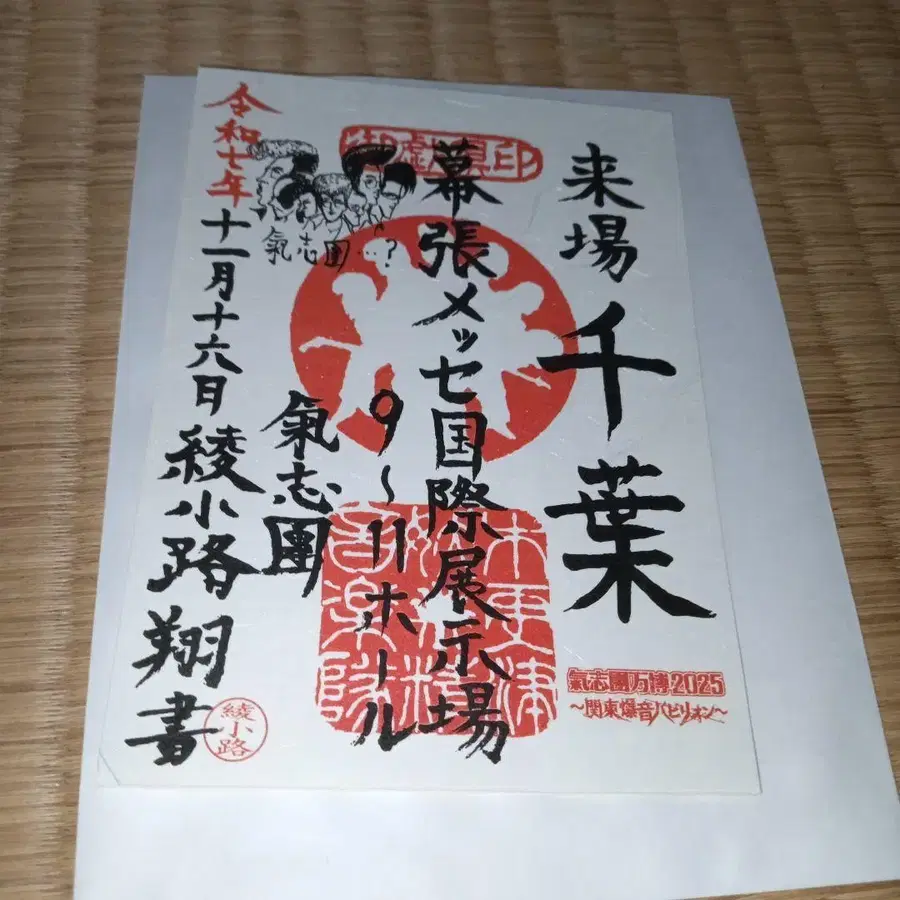 来場 千葉
幕張メッセ国際展示場
9〜11ホール
氣志團
令和七年 十一月十六日 綾小路翔書
綾小路
氣志團…?
氣志團万博2025
〜関東爆音パビリオン〜
木更津
音楽隊